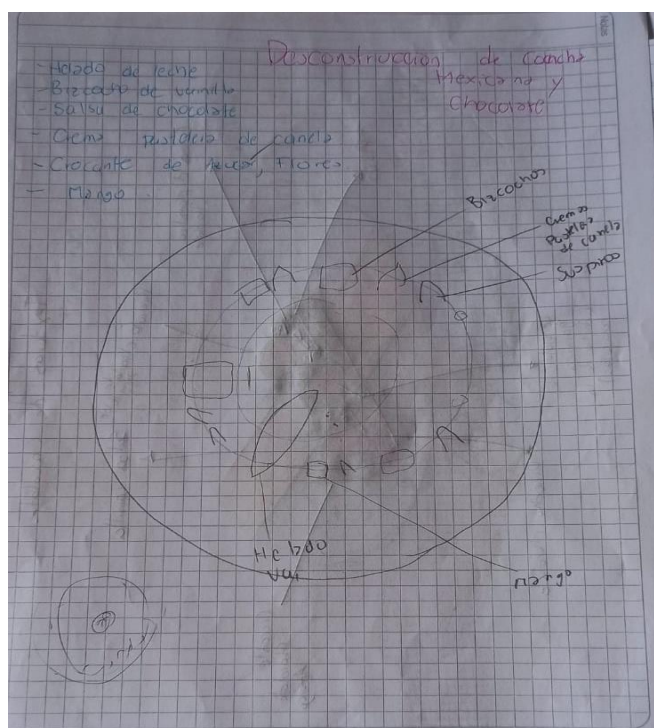 Desconstrucción de Concha
Mexicana y
Chocolate
- Helado de leche
- Bizcocho de vainilla
- Salsa de chocolate
- Crema pastelera de canela
- Crocante de flores
- Mango
Bizcochos
Crema
Pastelera
de canela
Suspiros
Helado
Mango